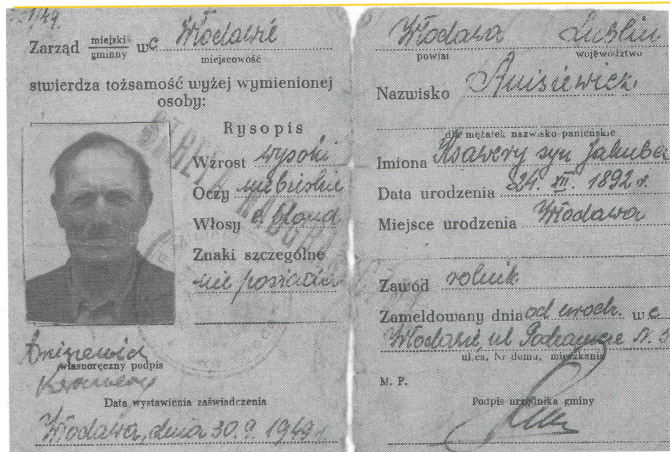 Zarząd miejski gminny we Włodawie
miejscowość
stwierdza tożsamość wyżej wymienionej
osoby:
Rysopis
Wzrost wysoki
Oczy niebieskie
Włosy c. blond
Znaki szczególne
nie posiada
własnoręczny podpis
Data wystawienia zaświadczenia
Włodawa, dnia 30.9. 1949 r.
Włodawa Lublin
powiat województwo
Nazwisko Anisiewicz
dla mężatek nazwisko panieńskie
Imiona Ksawery syn Jakuba
Data urodzenia 24. XII. 1892 r.
Miejsce urodzenia Włodawa
Zawód rolnik
Zameldowany dnia od urodz. we
Włodawie, ul.
ulica, Nr domu, mieszkania
M. P.
Podpis urzędnika gminy